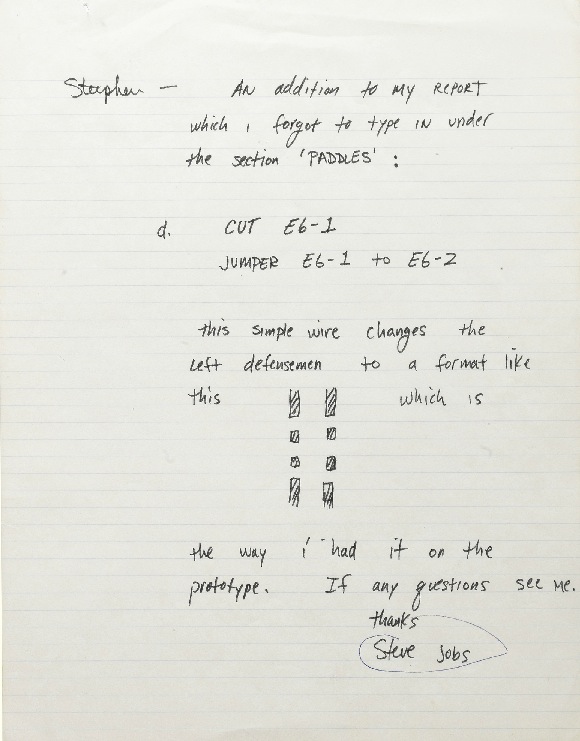 Steephen — AN addition to my REPORT
which i forgot to type IN under
the section 'PADDLES' :
d. CUT E6-1
JUMPER E6-1 to E6-2
this simple wire changes the
left defensemen to a format like
this which is
the way i had it on the
prototype. If any questions see me.
thanks
Steve jobs